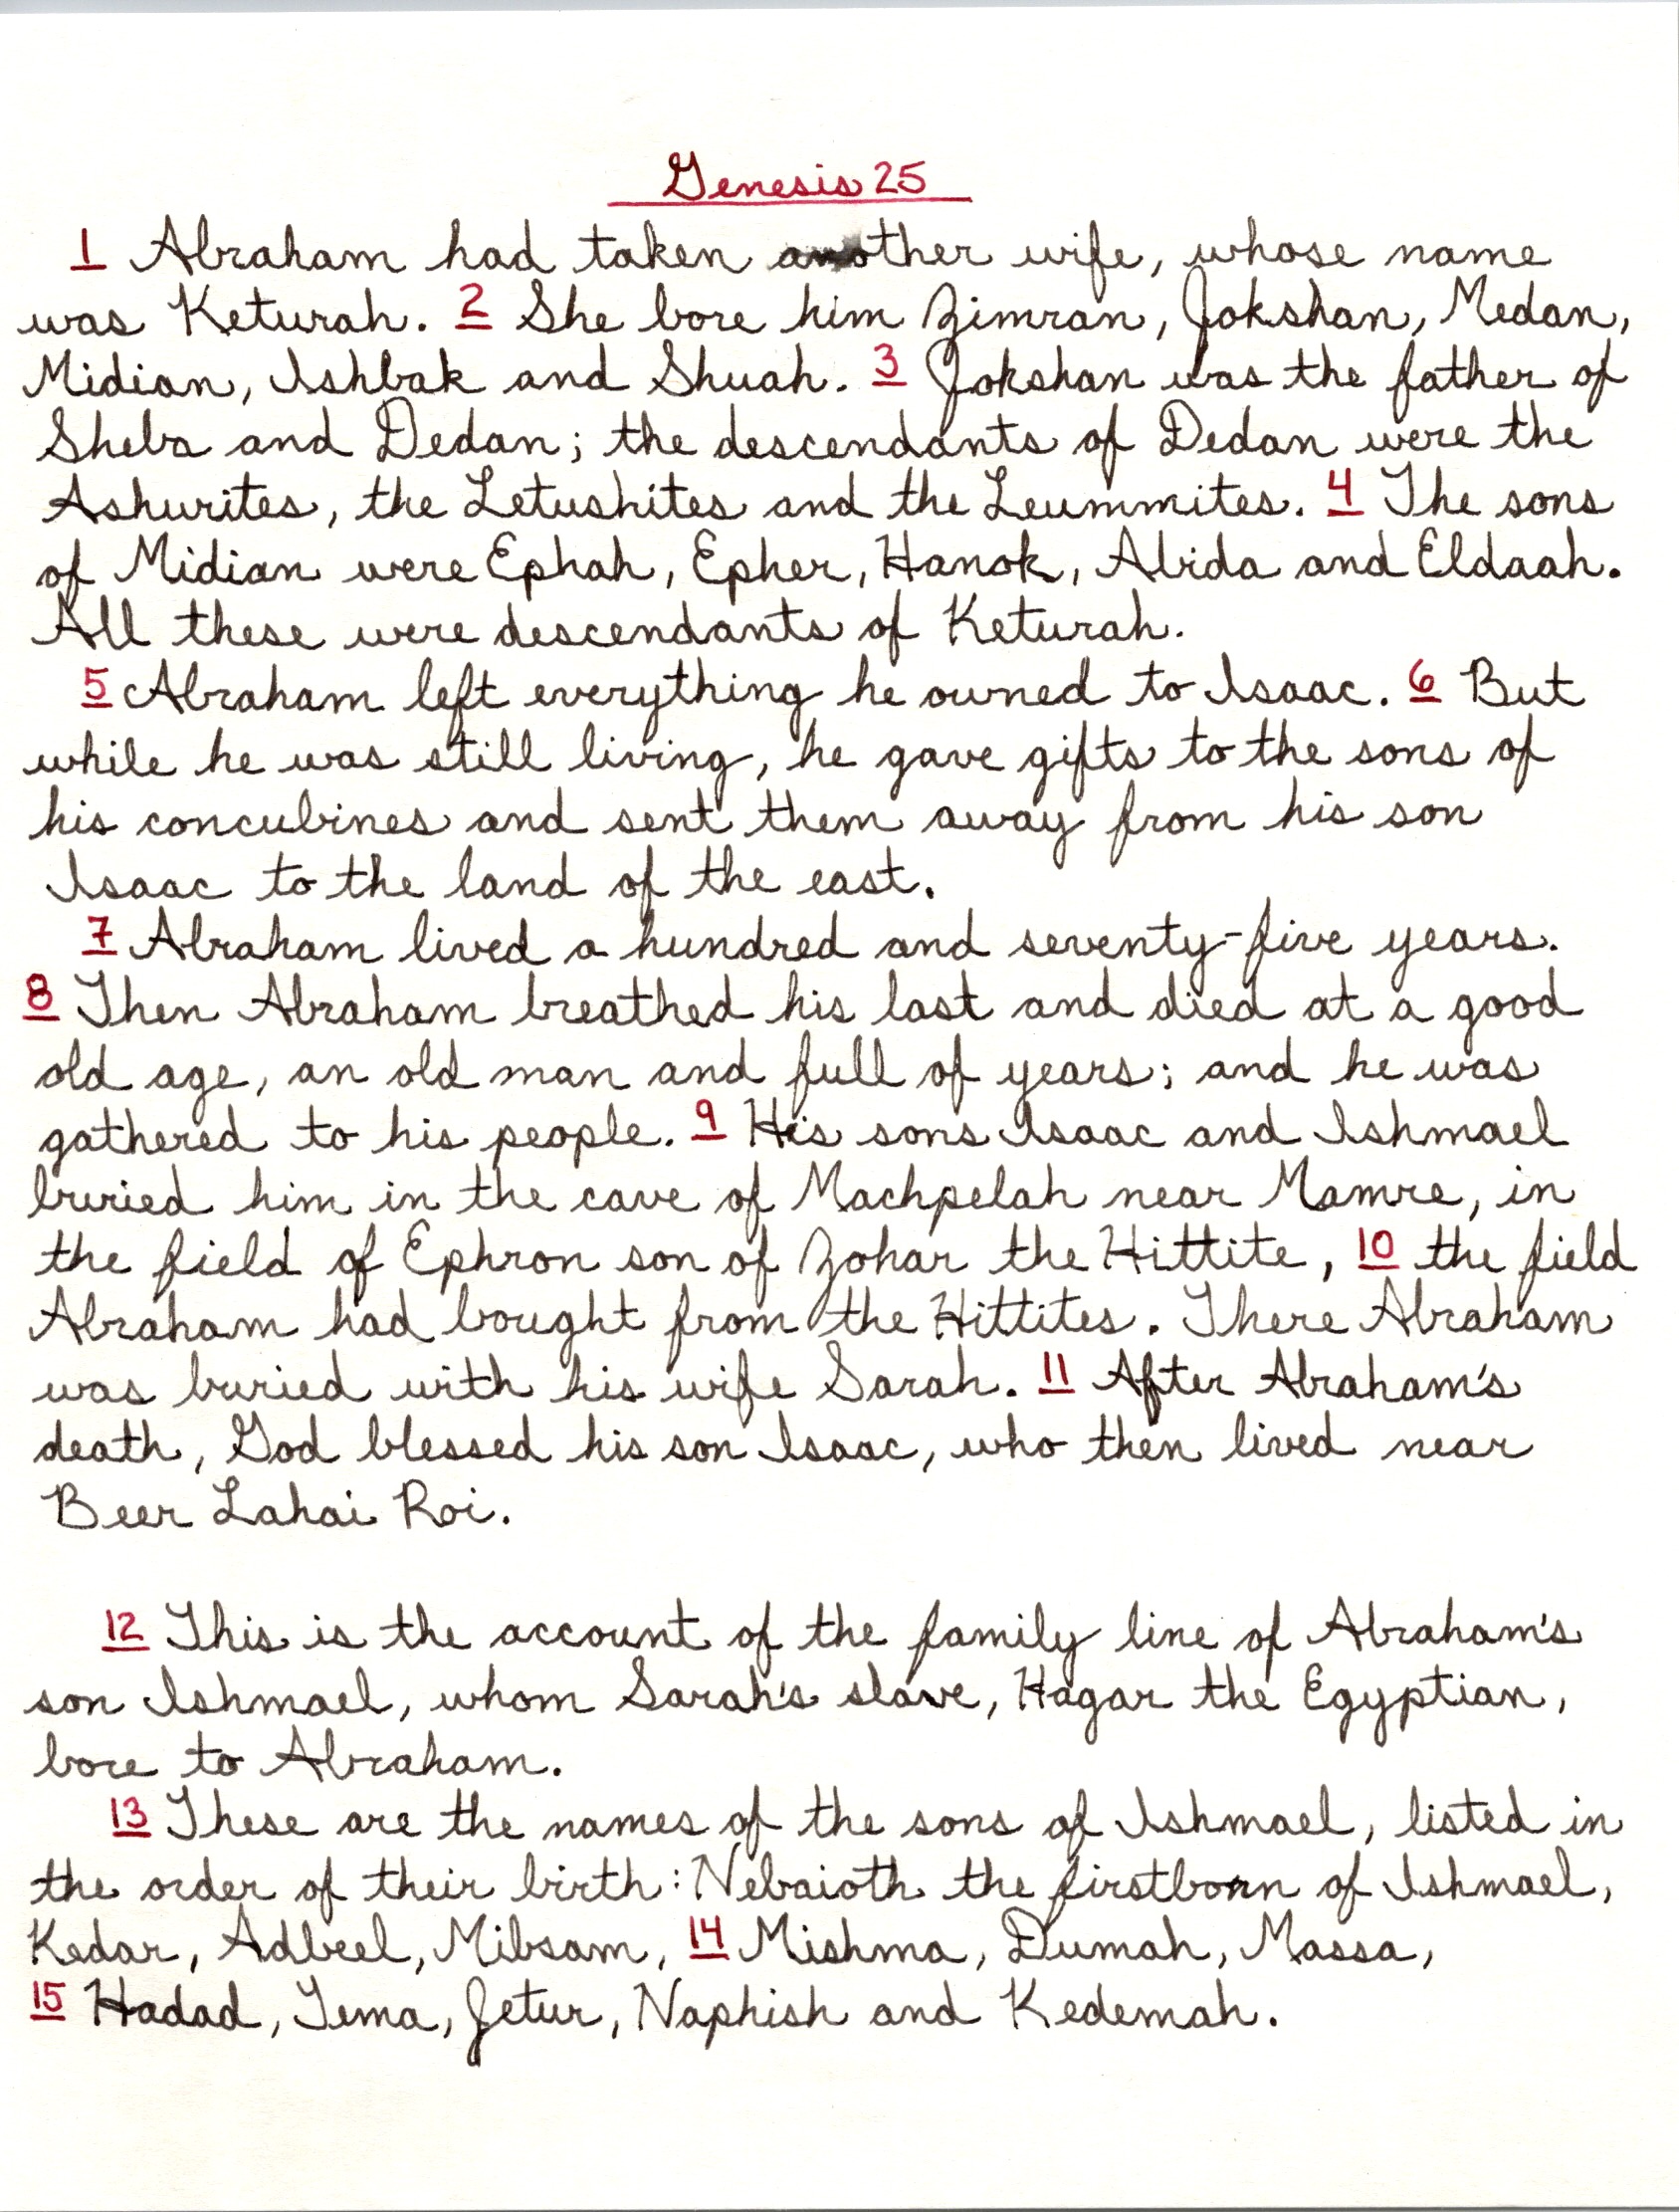 Genesis 25
1 Abraham had taken another wife, whose name
was Keturah. 2 She bore him Zimran, Jokshan, Medan,
Midian, Ishbak and Shuah. 3 Jokshan was the father of
Sheba and Dedan; the descendants of Dedan were the
Ashurites, the Letushites and the Leummites. 4 The sons
of Midian were Ephah, Epher, Hanok, Abida and Eldaah.
All these were descendants of Keturah.
5 Abraham left everything he owned to Isaac. 6 But
while he was still living, he gave gifts to the sons of
his concubines and sent them away from his son
Isaac to the land of the east.
7 Abraham lived a hundred and seventy-five years.
8 Then Abraham breathed his last and died at a good
old age, an old man and full of years; and he was
gathered to his people. 9 His sons Isaac and Ishmael
buried him in the cave of Machpelah near Mamre, in
the field of Ephron son of Zohar the Hittite, 10 the field
Abraham had bought from the Hittites. There Abraham
was buried with his wife Sarah. 11 After Abraham's
death, God blessed his son Isaac, who then lived near
Beer Lahai Roi.
12 This is the account of the family line of Abraham's
son Ishmael, whom Sarah's slave, Hagar the Egyptian,
bore to Abraham.
13 These are the names of the sons of Ishmael, listed in
the order of their birth: Nebaioth the firstborn of Ishmael,
Kedar, Adbeel, Mibsam, 14 Mishma, Dumah, Massa,
15 Hadad, Tema, Jetur, Naphish and Kedemah.